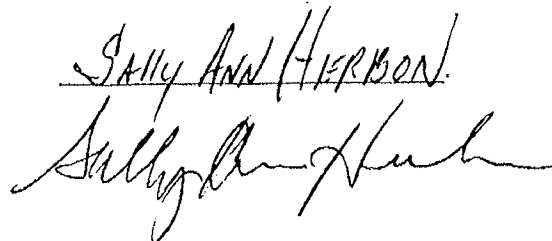 SAlly ANN HERBON.
Sally Ann Herbon